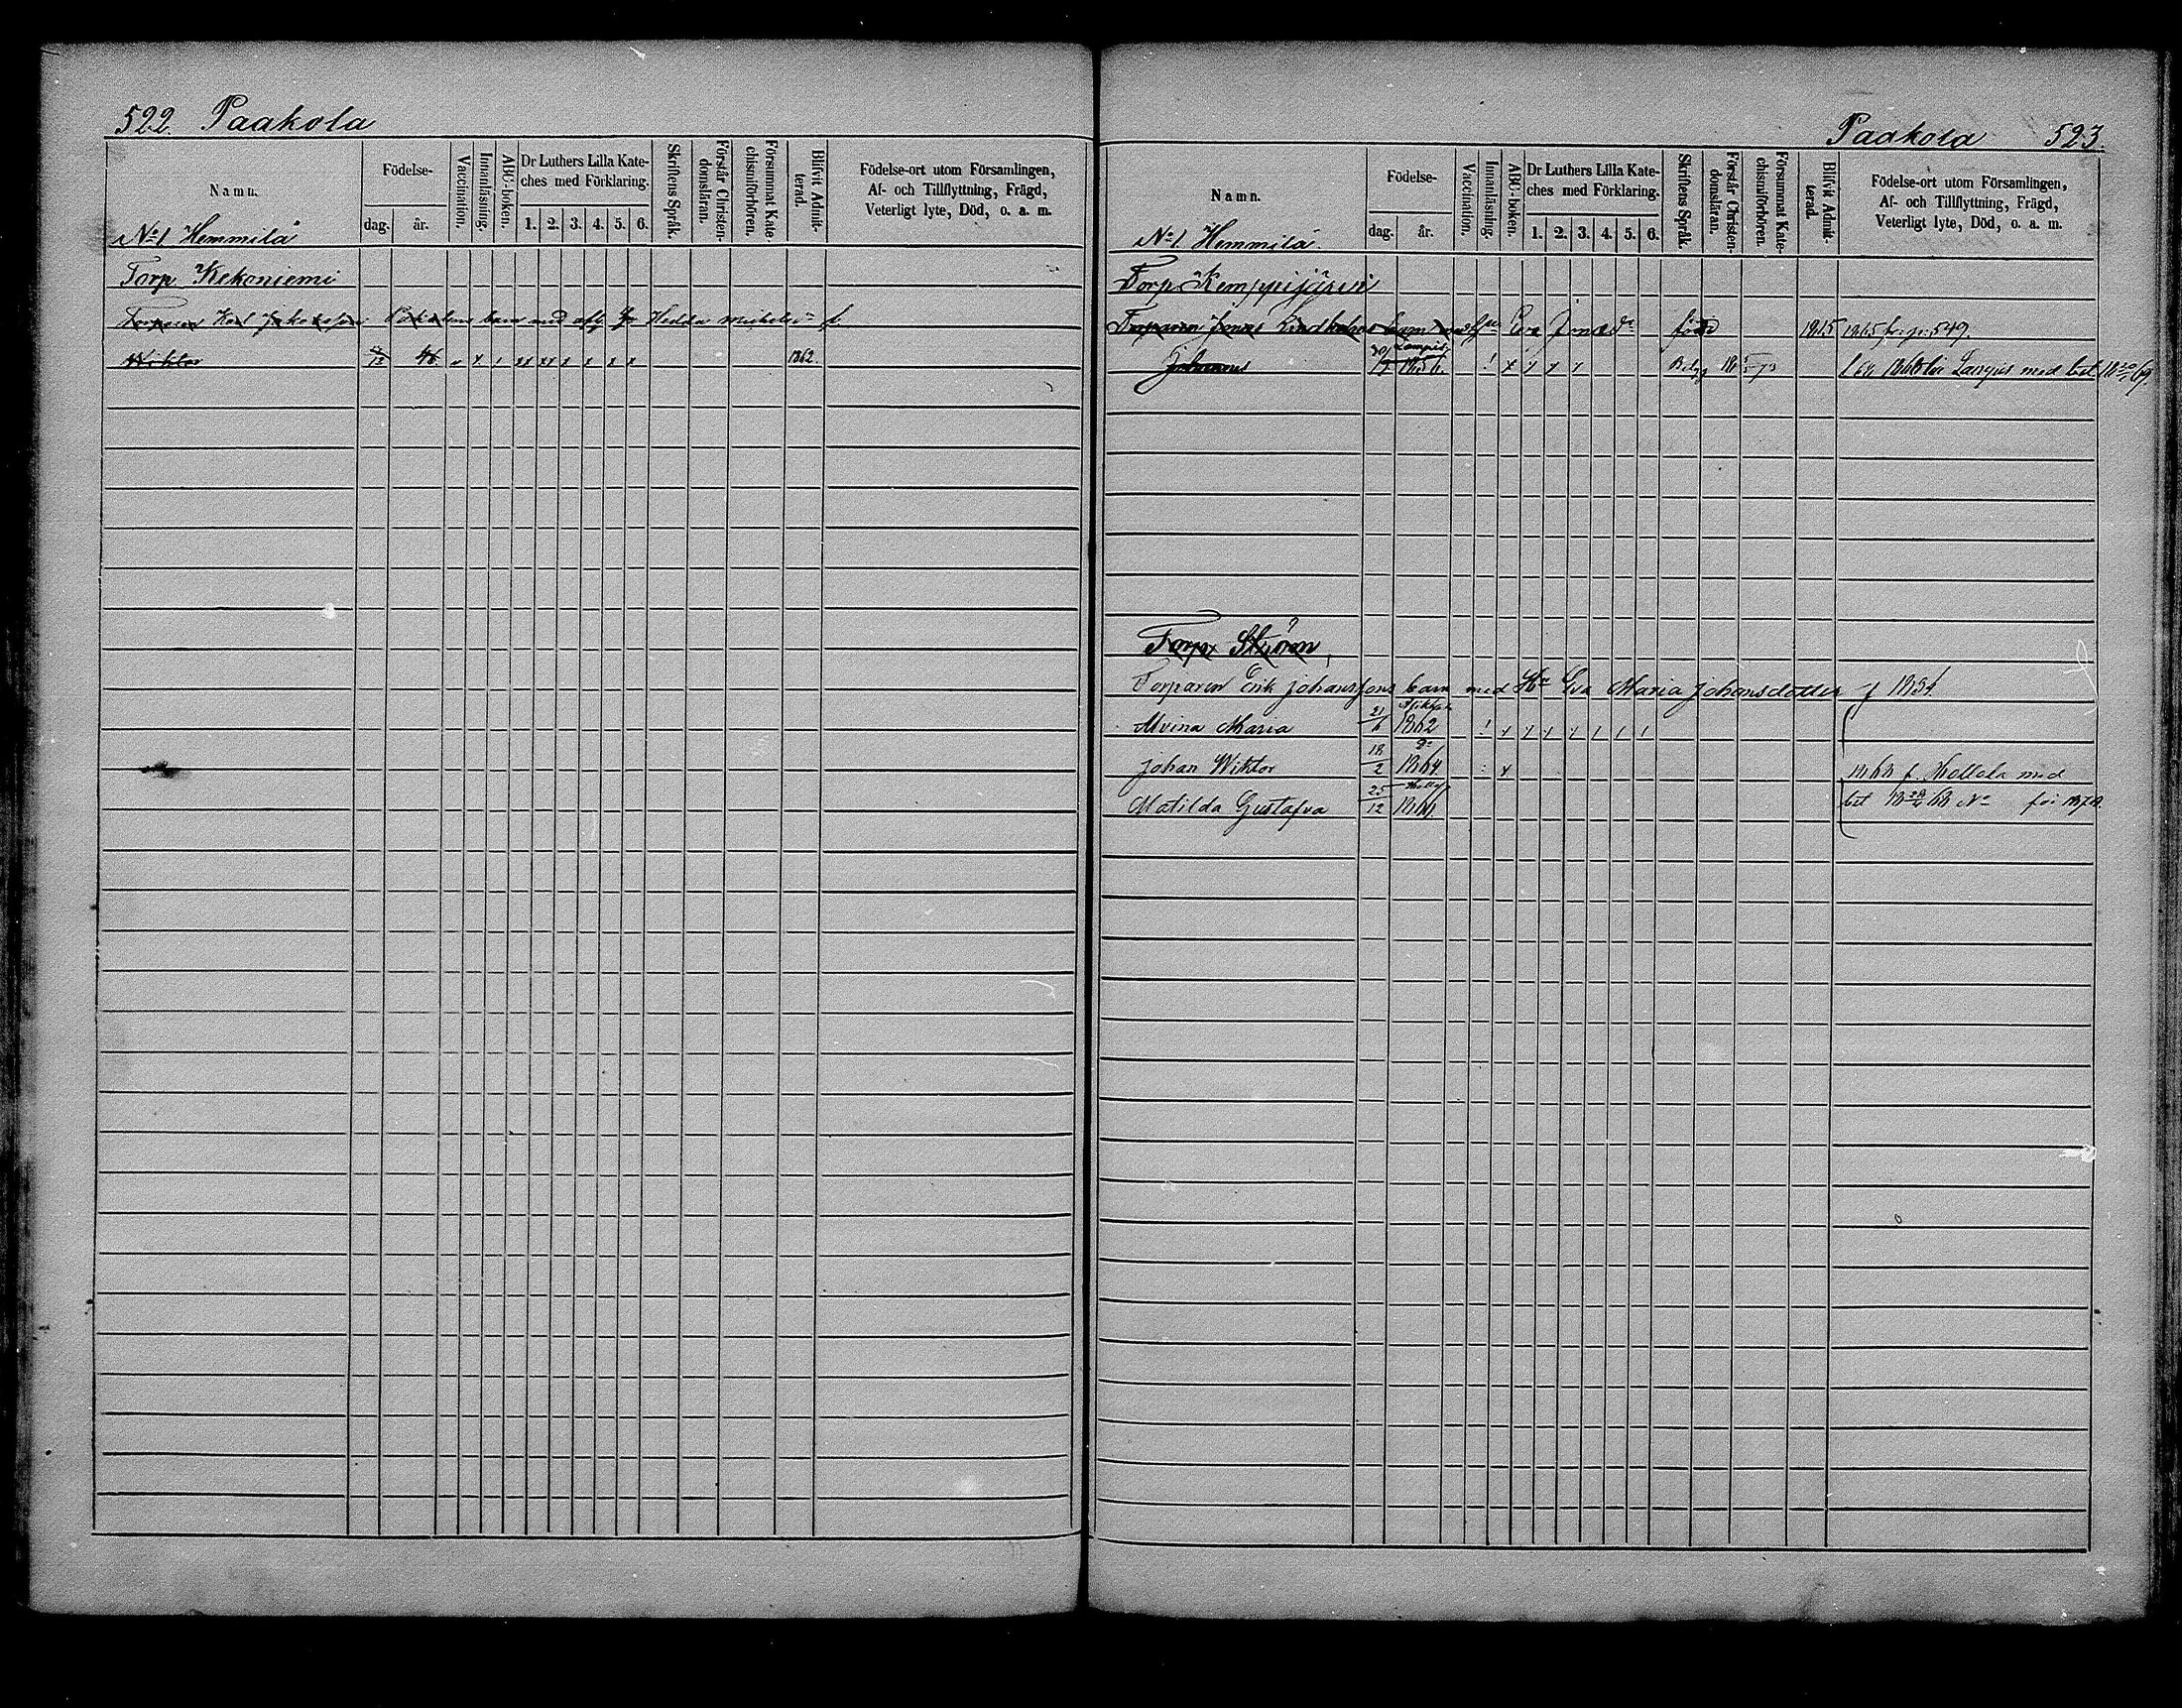 522. Paakola
Namn.
Födelse-
dag.
år.
Vaccination.
Innanläsning.
ABC-boken.
Dr Luthers Lilla Kate-
ches med Förklaring.
1. 2. 3. 4. 5. 6.
Skriftens Språk.
Förstår Christen-
domsläran.
Försummat Kate-
chismiförhören.
Blifvit Admit-
terad.
Födelse-ort utom Församlingen,
Af- och Tillflyttning, Frägd,
Veterligt lyte, Död, o. a. m.
No 1 Hemmilä
Torp Kekoniemi
Torparen Karl barn med Hedda
Wiktor 46. 1862.
Paakola 523.
Namn.
Födelse-
dag.
år.
Vaccination.
Innanläsning.
ABC-boken.
Dr Luthers Lilla Kate-
ches med Förklaring.
1. 2. 3. 4. 5. 6.
Skriftens Språk.
Förstår Christen-
domsläran.
Försummat Kate-
chismiförhören.
Blifvit Admit-
terad.
Födelse-ort utom Församlingen,
Af- och Tillflyttning, Frägd,
Veterligt lyte, Död, o. a. m.
No 1. Hemmilä.
Torp Kemppijärvi
Torparen Jonas Lindholms barn med Eva född 1815 1815 fr. p. 549.
Johannes 1856.
Torp Ström
Torparen Erik Johanssons barn med Hu Eva Maria Johansdotter f 1834
Alvina Maria 21/6 1862
Johan Wiktor 18/2 1864. 1868 f. Hollola med
Matilda Gustafva 25/12